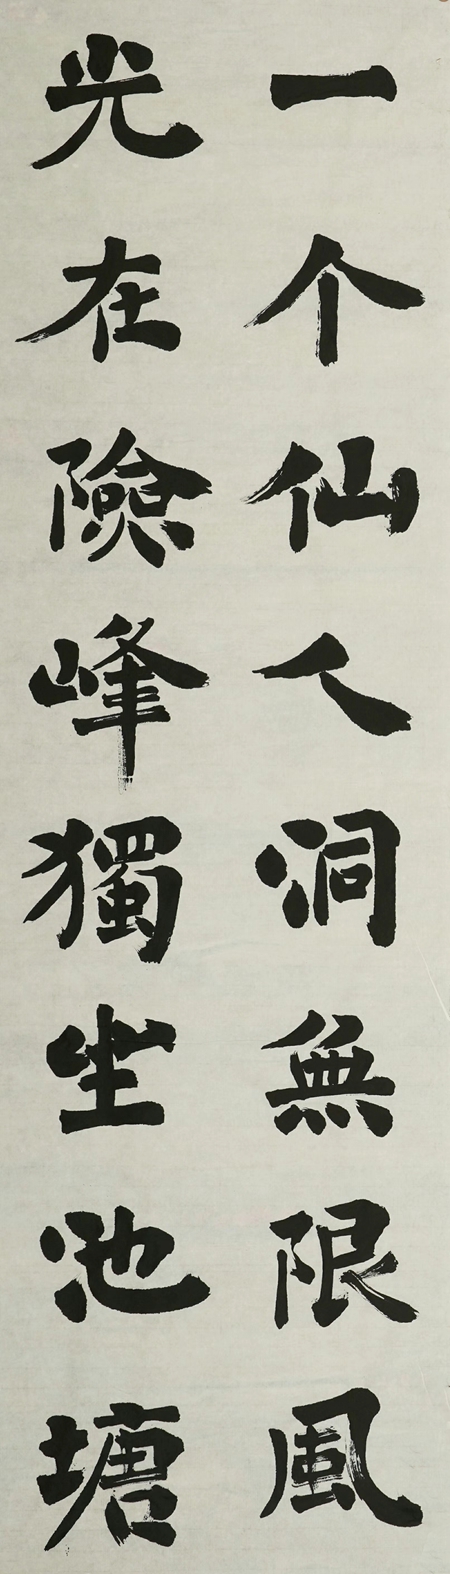 一个仙人洞無限風
光在險峰獨坐池塘